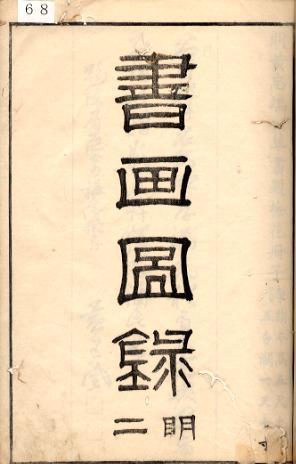 68
書画圖録
明二